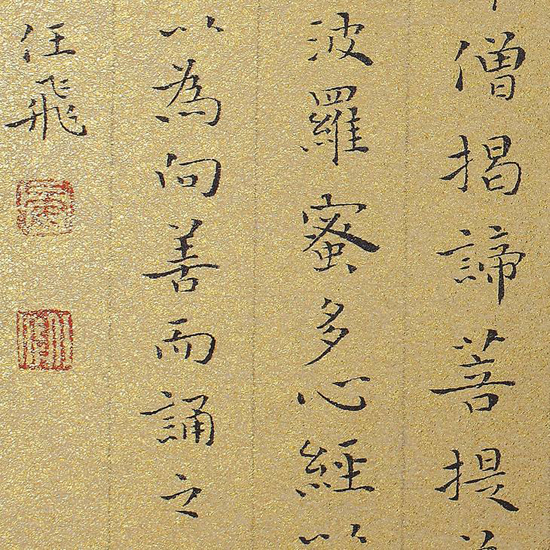 僧揭諦菩提
波羅蜜多心經
以為向善而誦之
任飛